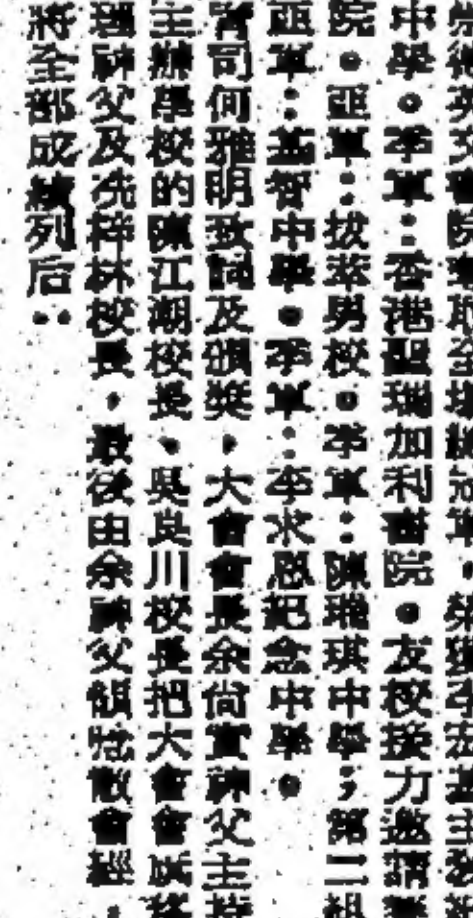 英文書院
中學。季軍：香港聖瑪加利書院。友校接力邀請
院。亞軍：拔萃男校。季軍：陳瑞琪中學；第二組
亞軍：基智中學。季軍：李求恩紀念中學。
署司何雅明致詞及頒獎，大會會長余尚實神父主持
主辦學校的陳江潮校長、吳良川校長把大會會旗移
神父及冼梓林校長，最後由余神父領唸散會經，
將全部成績列后：